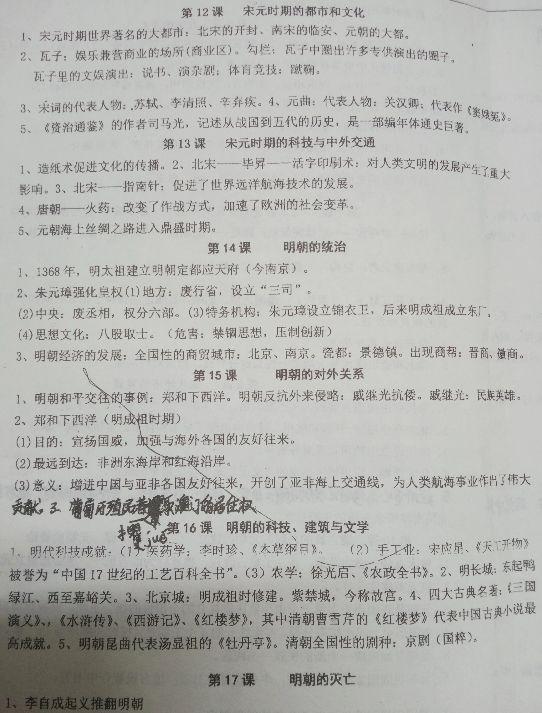 第12课 宋元时期的都市和文化
1、宋元时期世界著名的大都市：北宋的开封、南宋的临安、元朝的大都。
2、瓦子：娱乐兼营商业的场所(商业区)。勾栏：瓦子中圈出许多专供演出的圈子。
瓦子里的文娱演出：说书、演杂剧；体育竞技：蹴鞠。
3、宋词的代表人物：苏轼、李清照、辛弃疾。4、元曲：代表人物：关汉卿；代表作《窦娥冤》。
5、《资治通鉴》的作者司马光，记述从战国到五代的历史，是一部编年体通史巨著。
第13课 宋元时期的科技与中外交通
1、造纸术促进文化的传播。2、北宋——毕昇——活字印刷术：对人类文明的发展产生了重大
影响。3、北宋——指南针：促进了世界远洋航海技术的发展。
4、唐朝——火药：改变了作战方式，加速了欧洲的社会变革。
5、元朝海上丝绸之路进入鼎盛时期。
第14课 明朝的统治
1、1368年，明太祖建立明朝定都应天府（今南京）。
2、朱元璋强化皇权(1)地方：废行省，设立“三司”。
(2)中央：废丞相，权分六部。(3)特务机构：朱元璋设立锦衣卫，后来明成祖成立东厂。
(4)思想文化：八股取士。（危害：禁锢思想，压制创新）
3、明朝经济的发展：全国性的商贸城市：北京、南京。瓷都：景德镇。出现商帮：晋商、徽商。
第15课 明朝的对外关系
1、明朝和平交往的事例：郑和下西洋。明朝反抗外来侵略：戚继光抗倭。戚继光：民族英雄。
2、郑和下西洋（明成祖时期）
(1)目的：宣扬国威，加强与海外各国的友好往来。
(2)最远到达：非洲东海岸和红海沿岸。
(3)意义：增进中国与亚非各国友好往来，开创了亚非海上交通线，为人类航海事业作出了伟大
贡献。3、葡萄牙殖民者攫取澳门的居住权
攫jué
第16课 明朝的科技、建筑与文学
1、明代科技成就：(1)医药学：李时珍、《本草纲目》。 （2）手工业：宋应星、《天工开物》
被誉为“中国17世纪的工艺百科全书”。(3）农学：徐光启、《农政全书》。2、明长城：东起鸭
绿江、西至嘉峪关。3、北京城：明成祖时修建。紫禁城，今称故宫。4、四大古典名著：《三国
演义》、《水浒传》、《西游记》、《红楼梦》，其中清朝曹雪芹的《红楼梦》代表中国古典小说最
高成就。5、明朝昆曲代表汤显祖的《牡丹亭》。清朝全国性的剧种：京剧（国粹）。
第17课 明朝的灭亡
1、李自成起义推翻明朝